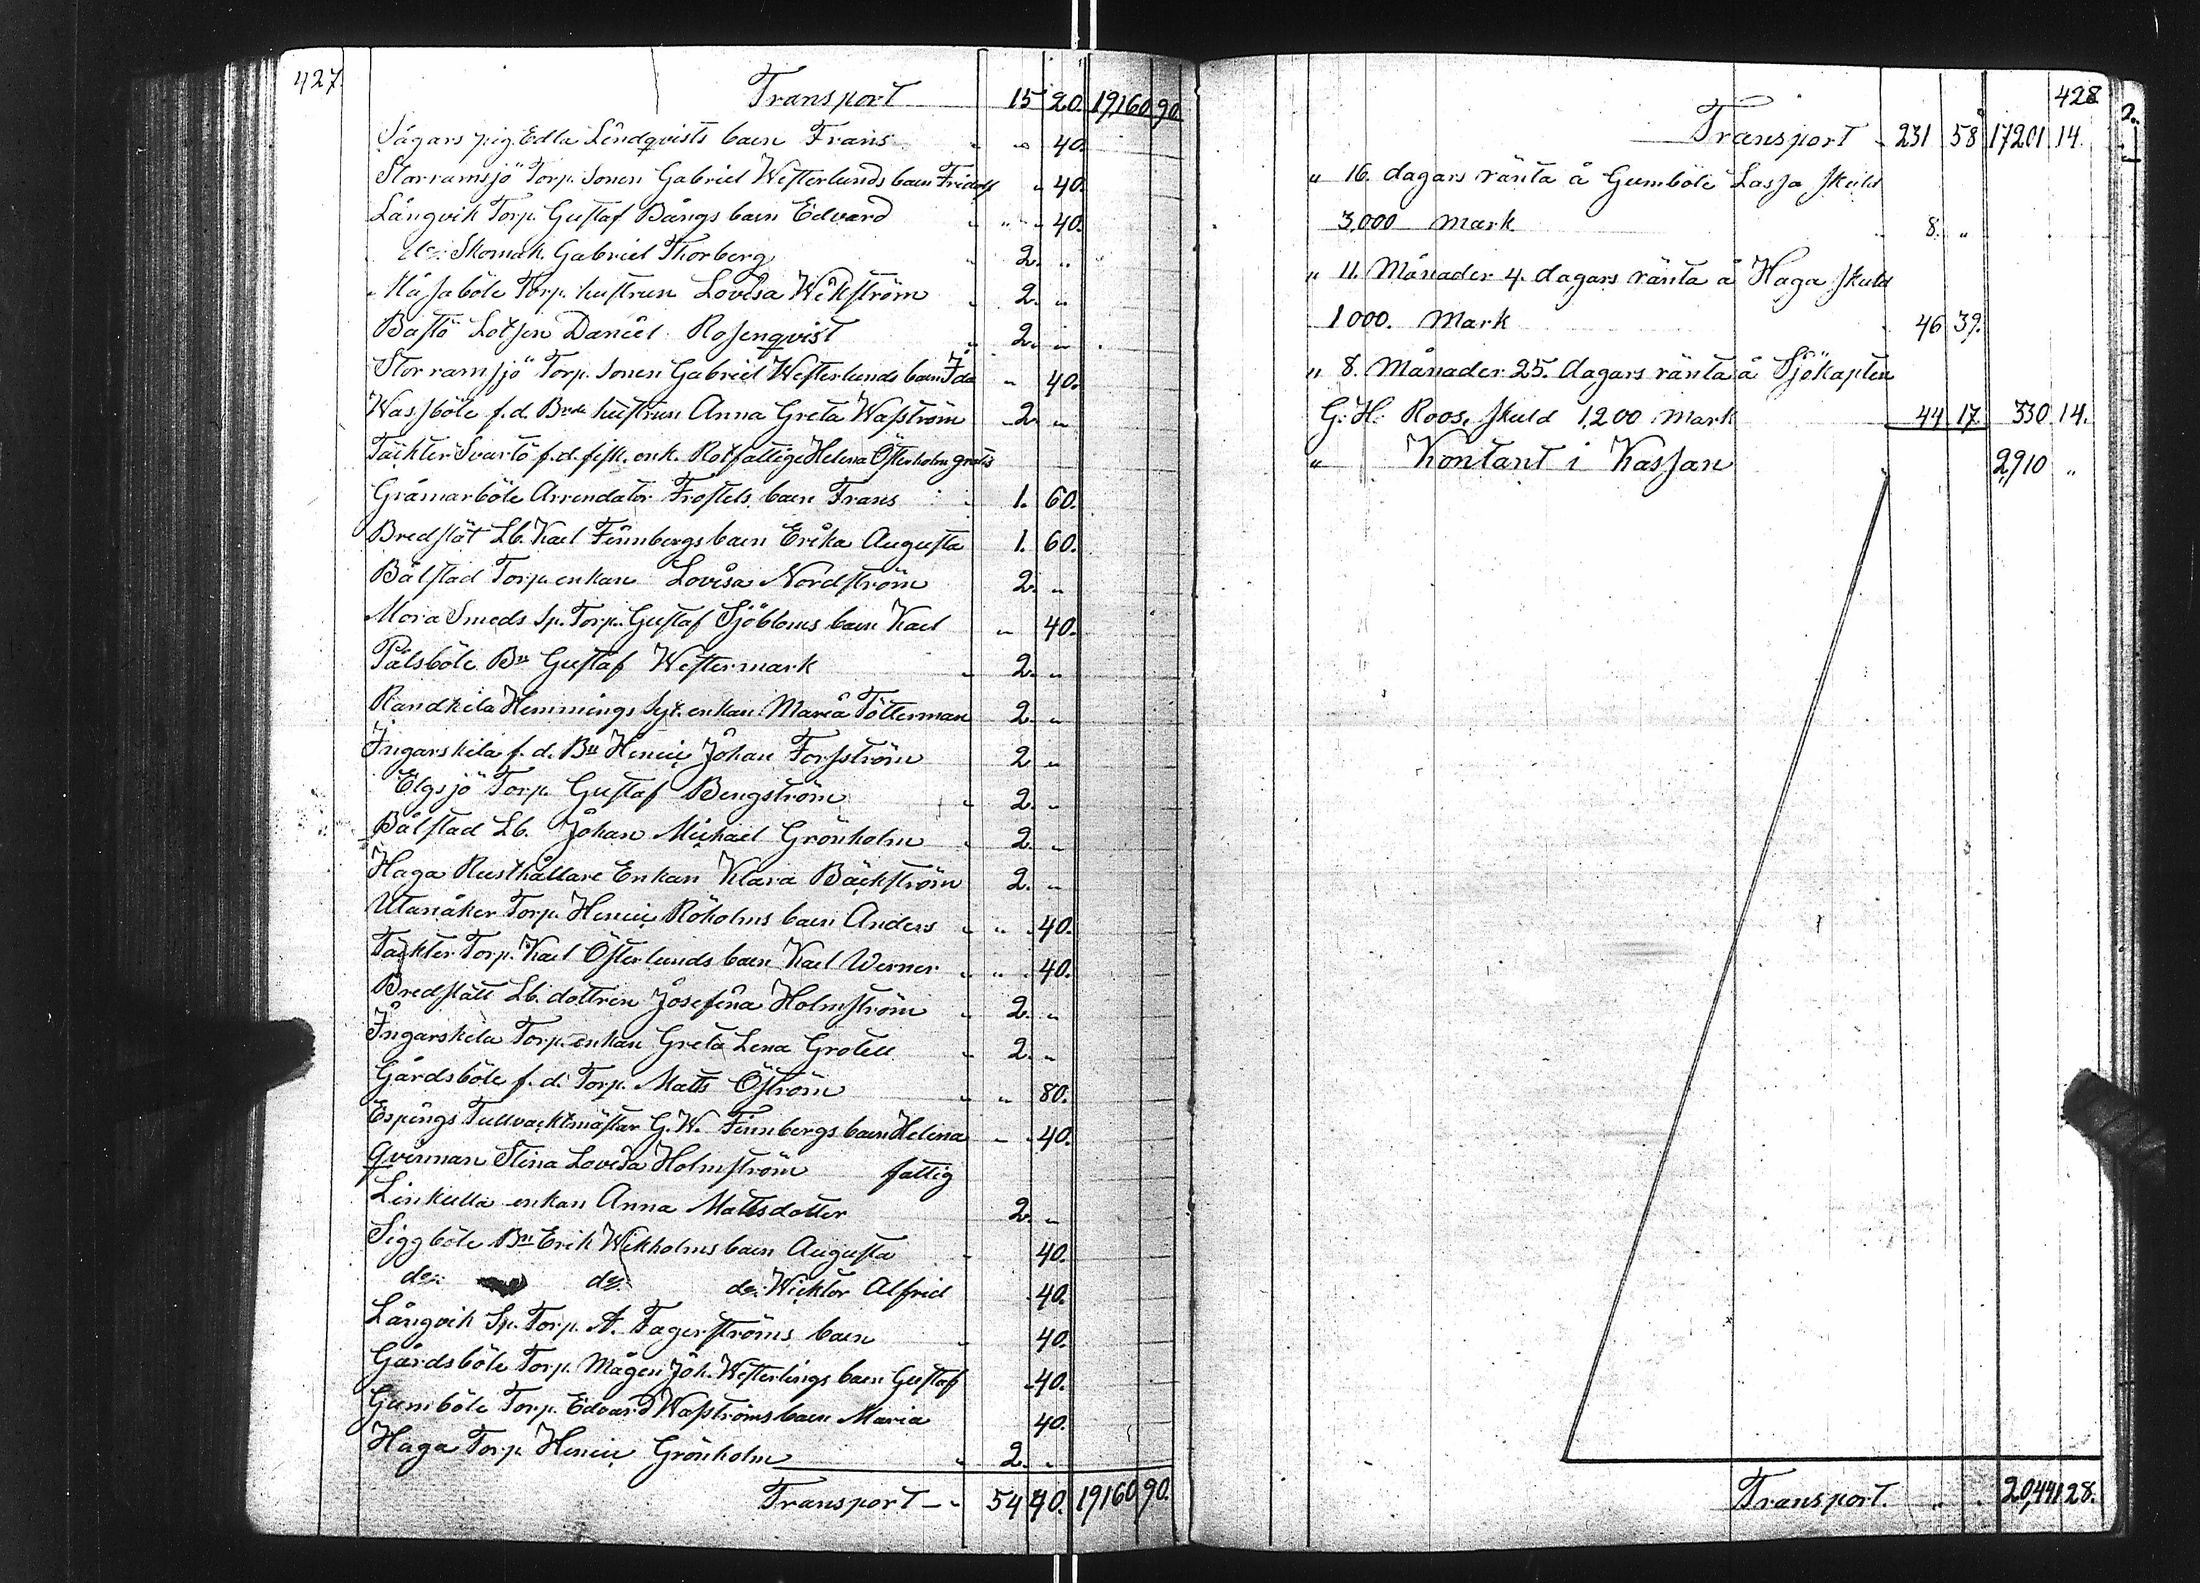 427.
Transport 15 20. 19,160 90.
Sågars pig. Edla Lindqvists barn Frans " " 40.
Storramsjö Torp. Sonen Gabriel Westerlunds barn Fridolf " 40.
Långvik Torp. Gustaf Bångs barn Edvard " " 40.
do: Skomak. Gabriel Thorberg 2. "
Håsaböle Torp. hustrun Lovisa Wikström 2. "
Bastö Lotsen Daniel Rosenqvist 2. "
Storramsjö Torp. Sonen Gabriel Westerlunds barn Ida " 40.
Wassböle f.d. Bnde hustrun Anna Greta Waström 2. "
Täckter Svartö f.d. fisk. enk. Rotfattige Helena Österholm gratis
Gråmarböle Arrendator Frostels barn Frans 1. 60.
Bredslät Lb. Karl Finnbergs barn Erika Augusta 1. 60.
Bålstad Torp. enkan Lovisa Nordström 2. "
Mora Smeds Sp. Torp. Gustaf Sjöbloms barn Karl " 40.
Pålsböle Bn Gustaf Westermark 2. "
Randkila Hemmings Syt. enkan Maria Tötterman 2. "
Ingarskila f.d. Bn Henric Johan Forsström 2 "
Elgsjö Torp. Gustaf Bengström 2. "
Bålstad Lb. Johan Michael Grönholm 2. "
Haga Rusthållare Enkan Klara Bäckström 2. "
Utanåker Torp. Henric Röholms barn Anders " 40.
Täckter Torp. Karl Österlunds barn Karl Werner " 40.
Bredslätt Lb. dottren Josefina Holmström 2. "
Ingarskila Torp. enkan Greta Lena Grotell 2. "
Gårdsböle f.d. Torp. Matts Öström " 80.
Espings Tullvacktmästar G. W. Finnbergs barn Helena " 40.
qvinnan Stina Lovisa Holmström fattig
Linkulla enkan Anna Mattsdotter 2. "
Siggböle Bn Erik Wikholms barn Augusta 40.
do: do: do: Wicktor Alfrid 40.
Långvik Sp. Torp. A. Fagerströms barn 40.
Gårdsböle Torp. Mågen Joh. Westerlings barn Gustaf 40.
Gumböle Torp. Edvard Waströms barn Maria 40.
Haga Torp. Henric Grönholm 2. "
Transport 54 40. 19160 90.
428
Transport 231 58 17201 14.
" 16. dagars ränta å Gumböle Lassa skuld
3,000 Mark 8. "
" 11. Månader 4. dagars ränta å Haga skuld
1000. Mark 46 39.
" 8. Månader 25. dagars ränta å Sjökapten
G. H. Roos, skuld 1,200 Mark 44 17. 330 14.
" Kontant i Kassan 2,910 "
Transport. " 20,441 28.